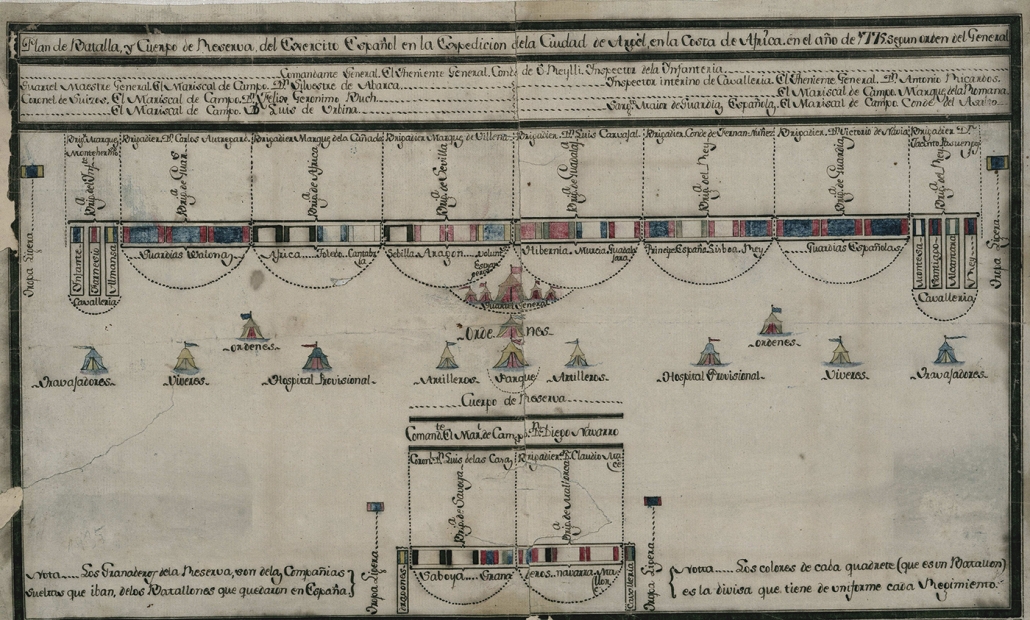 Plan de Batalla, y Cuerpo de Reserva, del Exercito Español en la Expedicion dela Ciudad de Argel, en la Costa de Africa. en el año de 1775 segun orden del General
Comandante General. El Theniente General, Conde de O Reylli. Inspector dela Infanteria
Quartel Maestre General. El Mariscal de Campo. Dn. Silvestre de Abarca
Inspector interino de Cavalleria. El Theniente General. Dn. Antonio Ricardos.
Coronel de Suizos. El Mariscal de Campo. Dn. Felix Geronimo Buch
El Mariscal de Campo. Marqs. de la Romana.
El Mariscal de Campo. Dn. Luis de Urbina
Sargto. Maior de Guardias Española, El Mariscal de Campo Conde del Asalto
Brigr. Marques Montehermo
Brigadier. Dn. Carlos Autregard.
Brigadier Marqs. dela Cañada
Brigadier Marqs. de Villena
Brigadier. Dn. Luis Carvajal.
Brigadier Conde de Fernan Nuñez
Brigadier. Dn. Victorio de Navia
Brigadier Dn. Vacinto Pasuengos
Briga. del Infte.
Briga. de Guars.
Briga. de Africa
Briga. de Sevilla
Briga. de Guadalaj.
Briga. del Rey
Briga. de Guardias
Briga. del Rey
Tropa Ligera
Tropa Ligera
Infante
Farnecio
Almansa
Cavalleria
Guardias Walonas
Africa
Toledo
Cantabria
Sebilla
Aragon
Volunt. Estrangeros
Hibernia
Murcia
Guadalajara
Principe
España
Lisboa
Rey
Guardias Españolas
Montesa
Santiago
Alcantara
Rey
Cavalleria
Quartel General
Ordenes
Ordenes
Ordenes
Travajadores
Viveres
Hospital Provisional
Artilleros
Parque
Artilleros
Hospital Provisional
Viveres
Travajadores
Cuerpo de Reserva
Comandte. El Marl. de Campo. Dn. Diego Navarro
Coronl. Dn. Luis delas Casas
Brigadier Dn. Claudio Macé
Briga. de Savoya
Briga. de Mallorca
Tropa Ligera
Tropa Ligera
Dragones
Cavalleria
Saboya
Granaderos
Navarra
Mallorca
Nota.... Los Granaderos dela Reserva, son delas Compañias
sueltas que iban, delos Batallones que quedaron en España.
Notta.... Los colores de cada quadrete (que es un Batallon)
es la divisa que tiene de uniforme cada Regimiento.